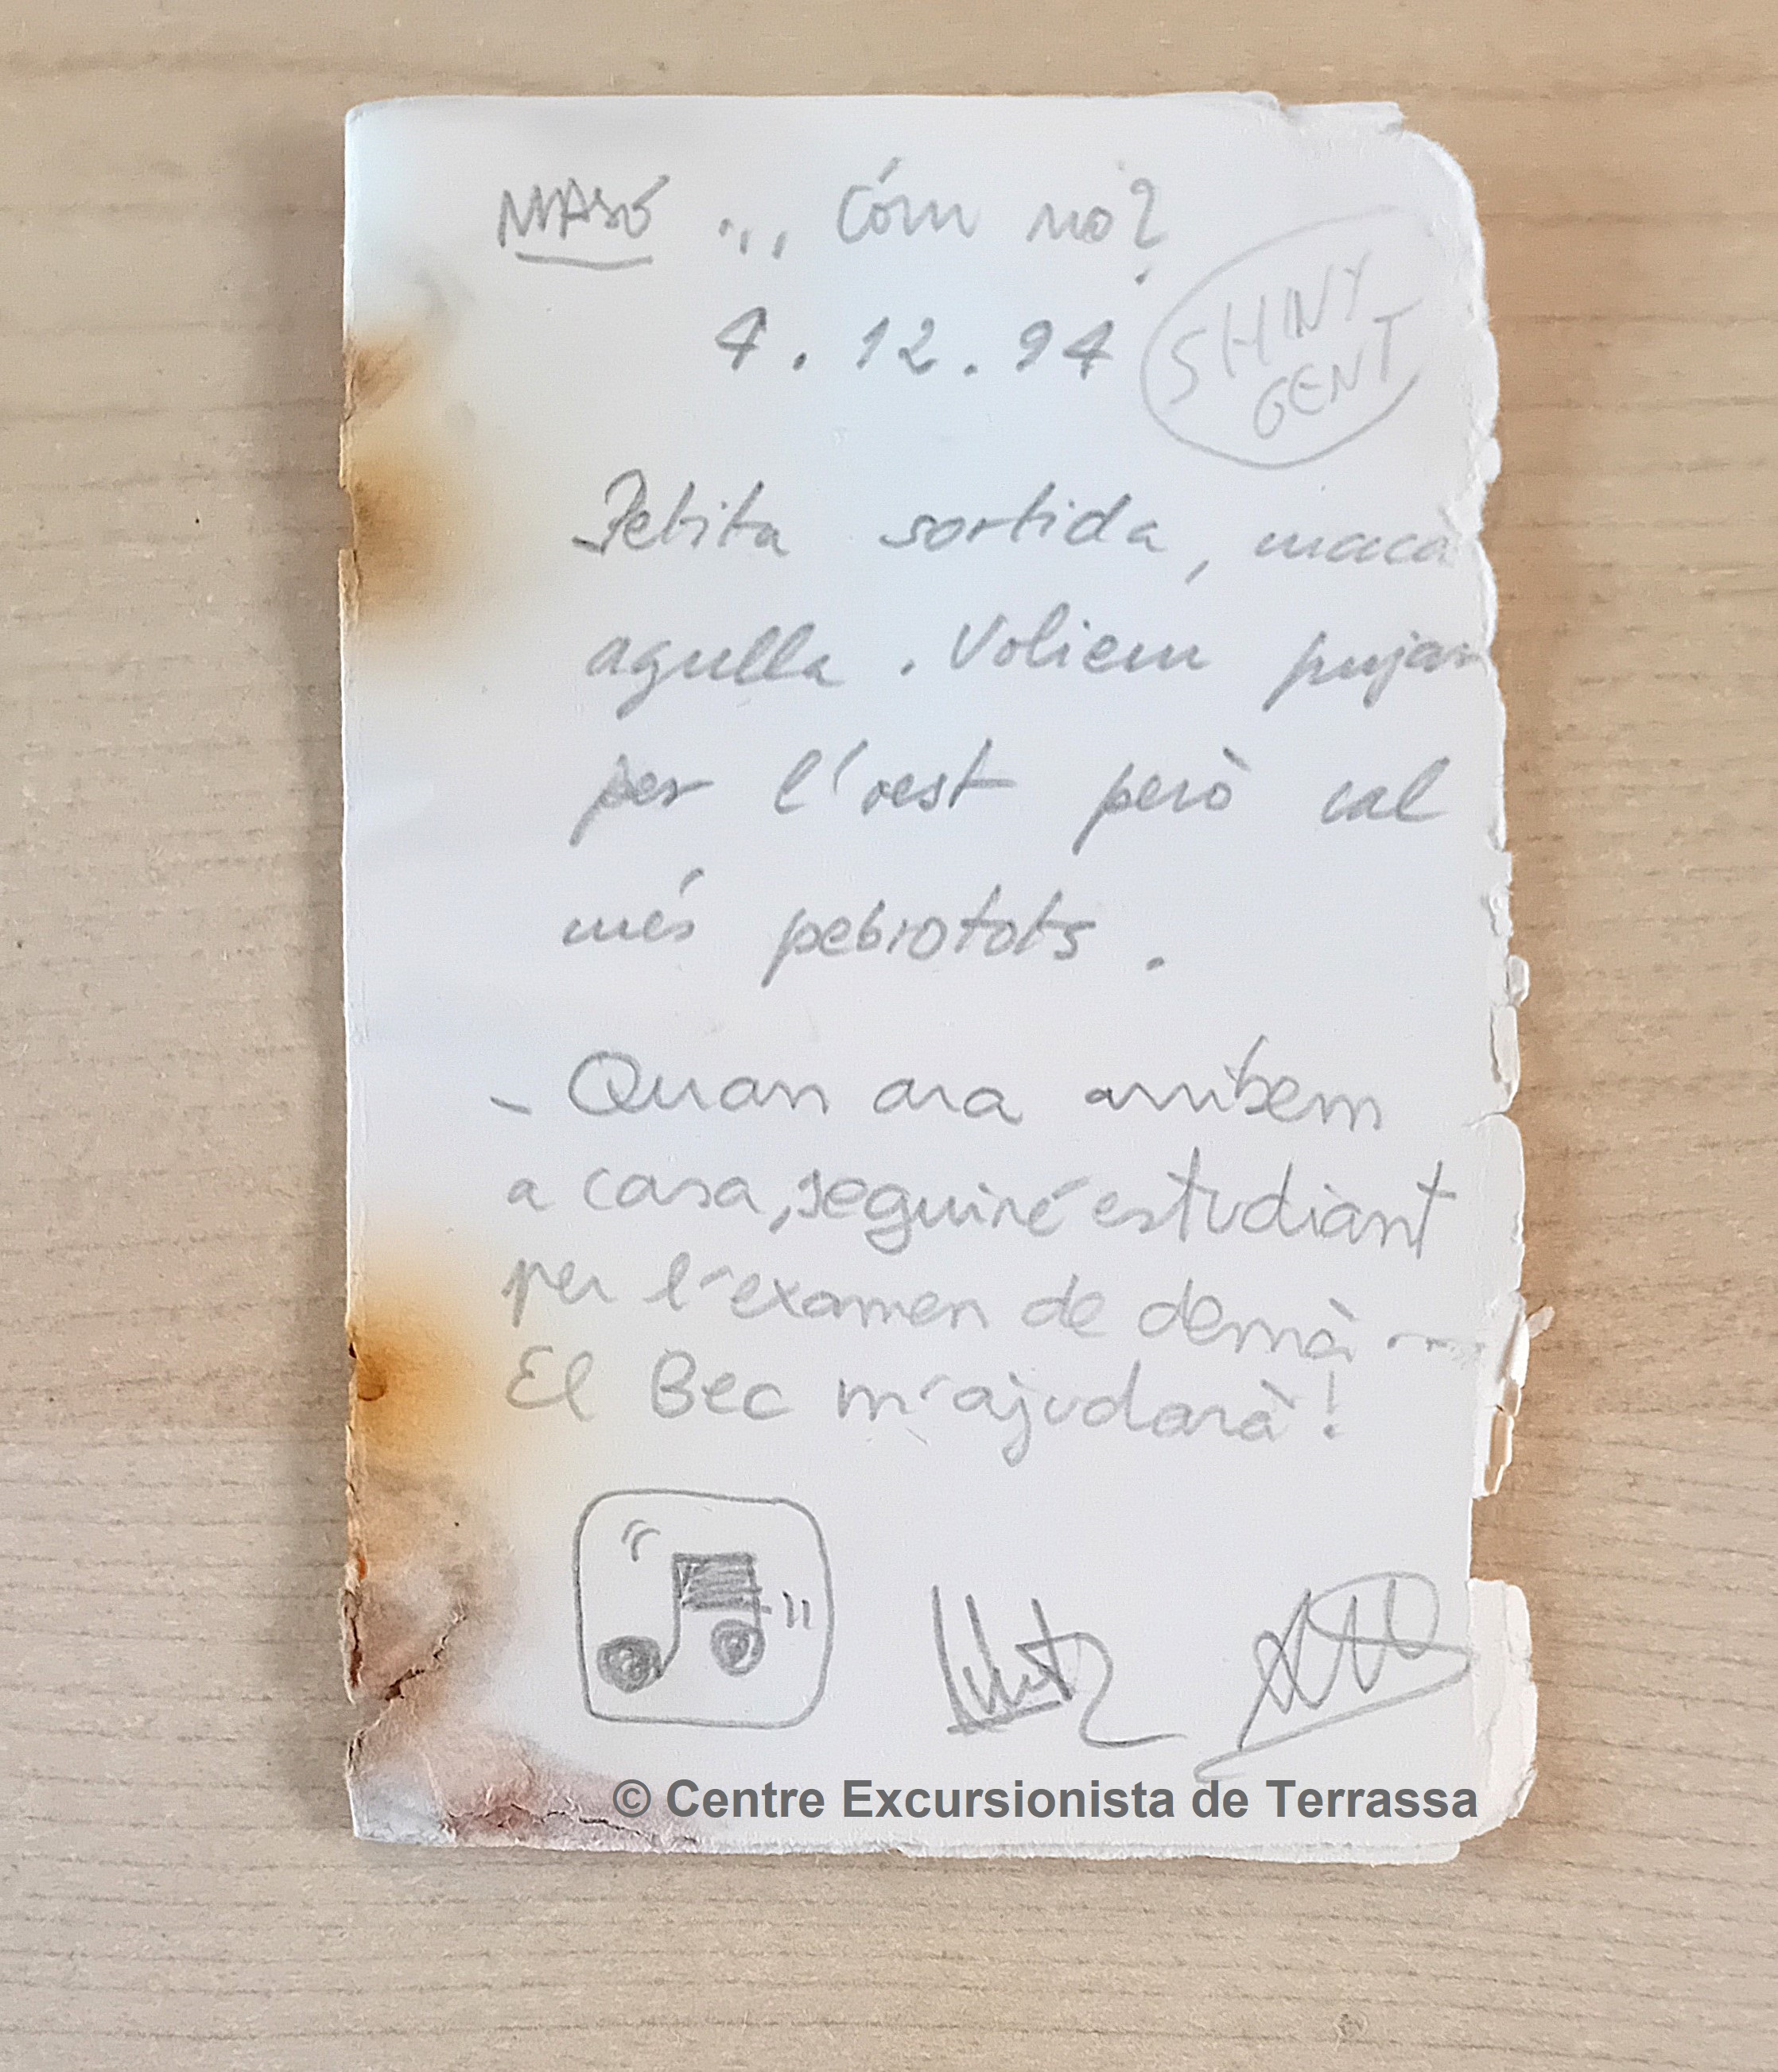 MASÓ ... Cóm no?
4.12.94
SHINY
GENT
Petita sortida, maca
agulla. Voliem pujar
per l'oest però cal
més pebrotots.
- Quan ara arribem
a casa, seguiré estudiant
per l'examen de demà ...
El Bec m'ajudarà!
© Centre Excursionista de Terrassa